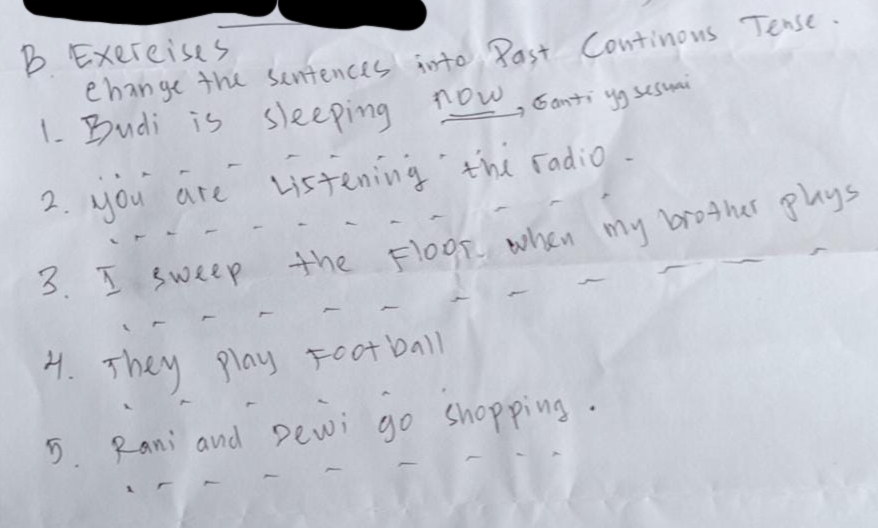 B. Exercises
change the sentences into Past Continous Tense.
1. Budi is sleeping now, Ganti yg sesuai
2. you are Listening the radio.
3. I sweep the Floor. when my brother plays
4. They play Football
5. Rani and Dewi go shopping.